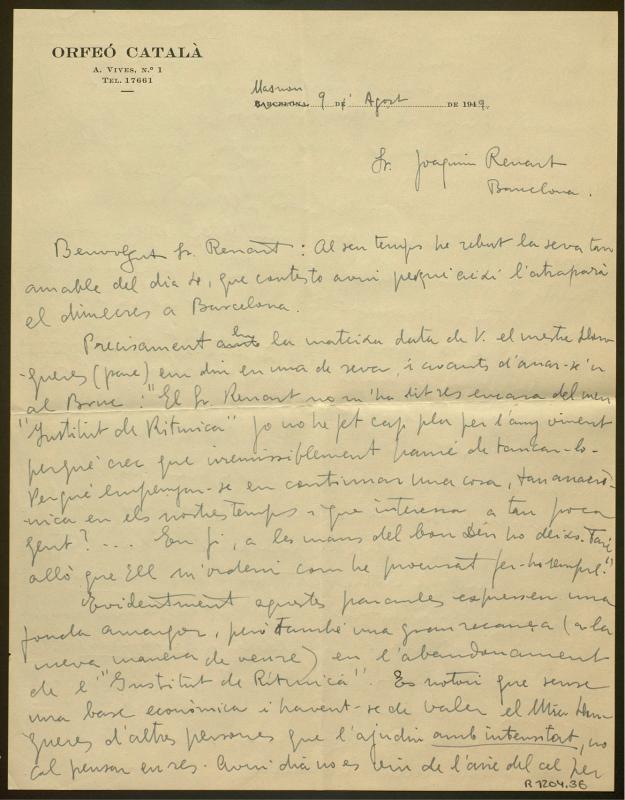 ORFEÓ CATALÀ
A. Vives, n.º 1
Tel. 17661
Masnou
BARCELONA, 9 d' Agost DE 1949.
Sr. Joaquim Renart
Barcelona.
Benvolgut Sr. Renart: Al seu temps he rebut la seva tan
amable del dia 4, que contesto avui perquè així l'atraparà
el dimecres a Barcelona.
Precisament en la mateixa data de V. el mestre Llon-
gueres (pare) em diu en una de seva, i avants d'anar-se'n
al Bruc: "El Sr. Renart no m'ha dit res encara del meu
"Institut de Rítmica" Jo no he fet cap pla per l'any vinent
perquè crec que irremissiblement hauré de tancar-lo.
Perquè empenyar-se en continuar una cosa, tan anacrò-
nica en els nostres temps i que interessa a tan poca
gent? ... En fi, a les mans del bon Déu ho deixo. Faré
allò que Ell m'ordeni com he procurat fer-ho sempre."
Evidentment aquestes paraules expressen una
fonda amargor, però també una gran recança (a la
meva manera de veure) en l'abandonament
de l'"Institut de Rítmica". Es notori que sense
una base econòmica i havent-se de valer el Mtre Llon-
gueres d'altres persones que l'ajudin amb intensitat, no
cal pensar en res. Avui dia no es viu de l'aire del cel per
R.1204.36